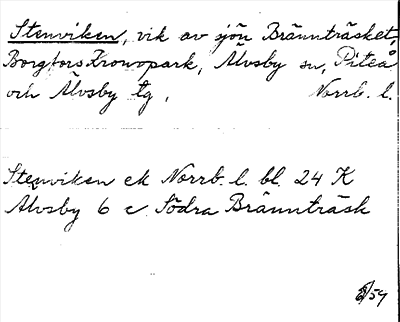 Stenviken, vik av sjön Brännträsket,
Borgfors Kronopark, Älvsby sn, Piteå
och Älvsby tg, Norrb. l.
Stenviken ek Norrb. l. bl. 24 K
Älvsby 6 c Södra Brännträsk
/54